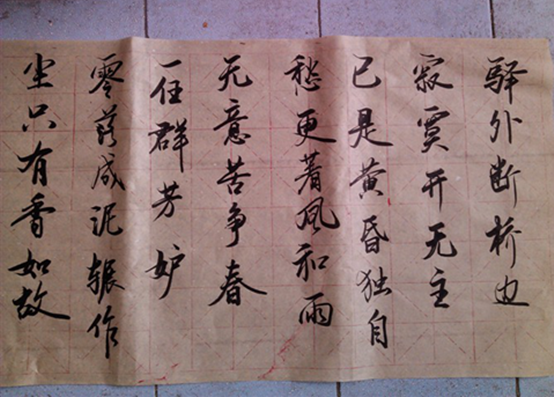 驿外断桥边
寂寞开无主
已是黄昏独自
愁更著风和雨
无意苦争春
一任群芳妒
零落成泥辗作
尘只有香如故